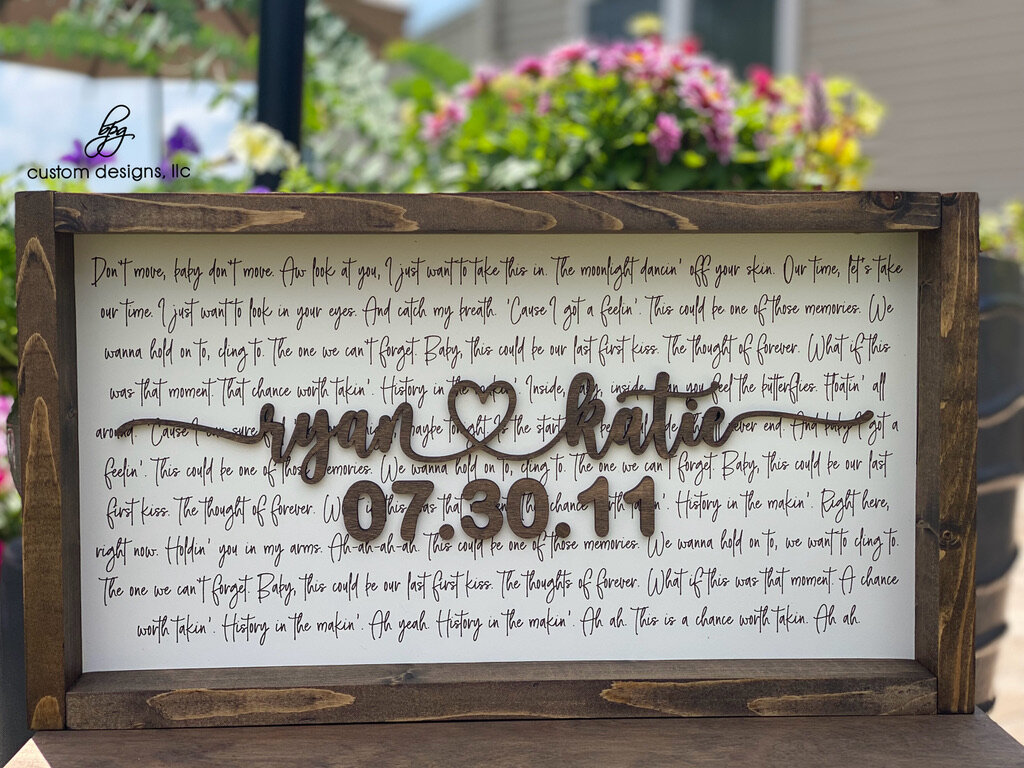 bpg
custom designs, llc
Don't move, baby don't move. Aw look at you, I just want to take this in. The moonlight dancin' off your skin. Our time, let's take
our time. I just want to look in your eyes. And catch my breath. 'Cause I got a feelin'. This could be one of those memories. We
wanna hold on to, cling to. The one we can't forget. Baby, this could be our last first kiss. The thought of forever. What if this
was that moment. That chance worth takin'. History in the makin'. Inside, inside can you feel the butterflies. Floatin' all
around. 'Cause I can sure maybe tonight is the start ever end. And baby I got a
ryan katie
feelin'. This could be one of those memories. We wanna hold on to, cling to. The one we can't forget. Baby, this could be our last
07.30.11
first kiss. The thought of forever. What if this was that chance worth takin'. History in the makin'. Right here,
right now. Holdin' you in my arms. Ah-ah-ah-ah. This could be one of those memories. We wanna hold on to, we want to cling to.
The one we can't forget. Baby, this could be our last first kiss. The thoughts of forever. What if this was that moment. A chance
worth takin'. History in the makin'. Ah yeah. History in the makin'. Ah ah. This is a chance worth takin. Ah ah.